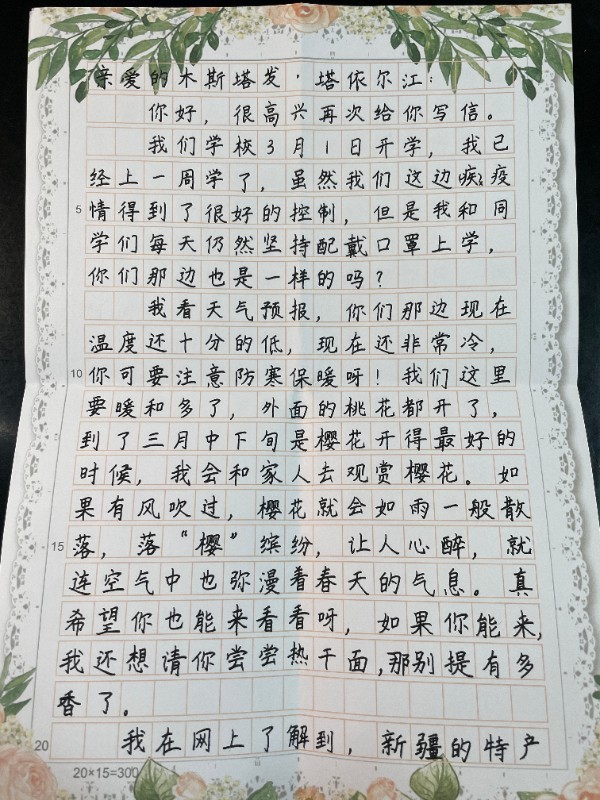 亲爱的木斯塔发·塔依尔江：
你好，很高兴再次给你写信。
我们学校3月1日开学，我已
经上一周学了，虽然我们这边疫疫
5 情得到了很好的控制，但是我和同
学们每天仍然坚持配戴口罩上学，
你们那边也是一样的吗？
我看天气预报，你们那边现在
温度还十分的低，现在还非常冷，
10 你可要注意防寒保暖呀！我们这里
要暖和多了，外面的桃花都开了，
到了三月中下旬是樱花开得最好的
时候，我会和家人去观赏樱花。如
果有风吹过，樱花就会如雨一般散
15 落，落“樱”缤纷，让人心醉，就
连空气中也弥漫着春天的气息。真
希望你也能来看看呀，如果你能来，
我还想请你尝尝热干面，那别提有多
香了。
20 我在网上了解到，新疆的特产
20×15=300